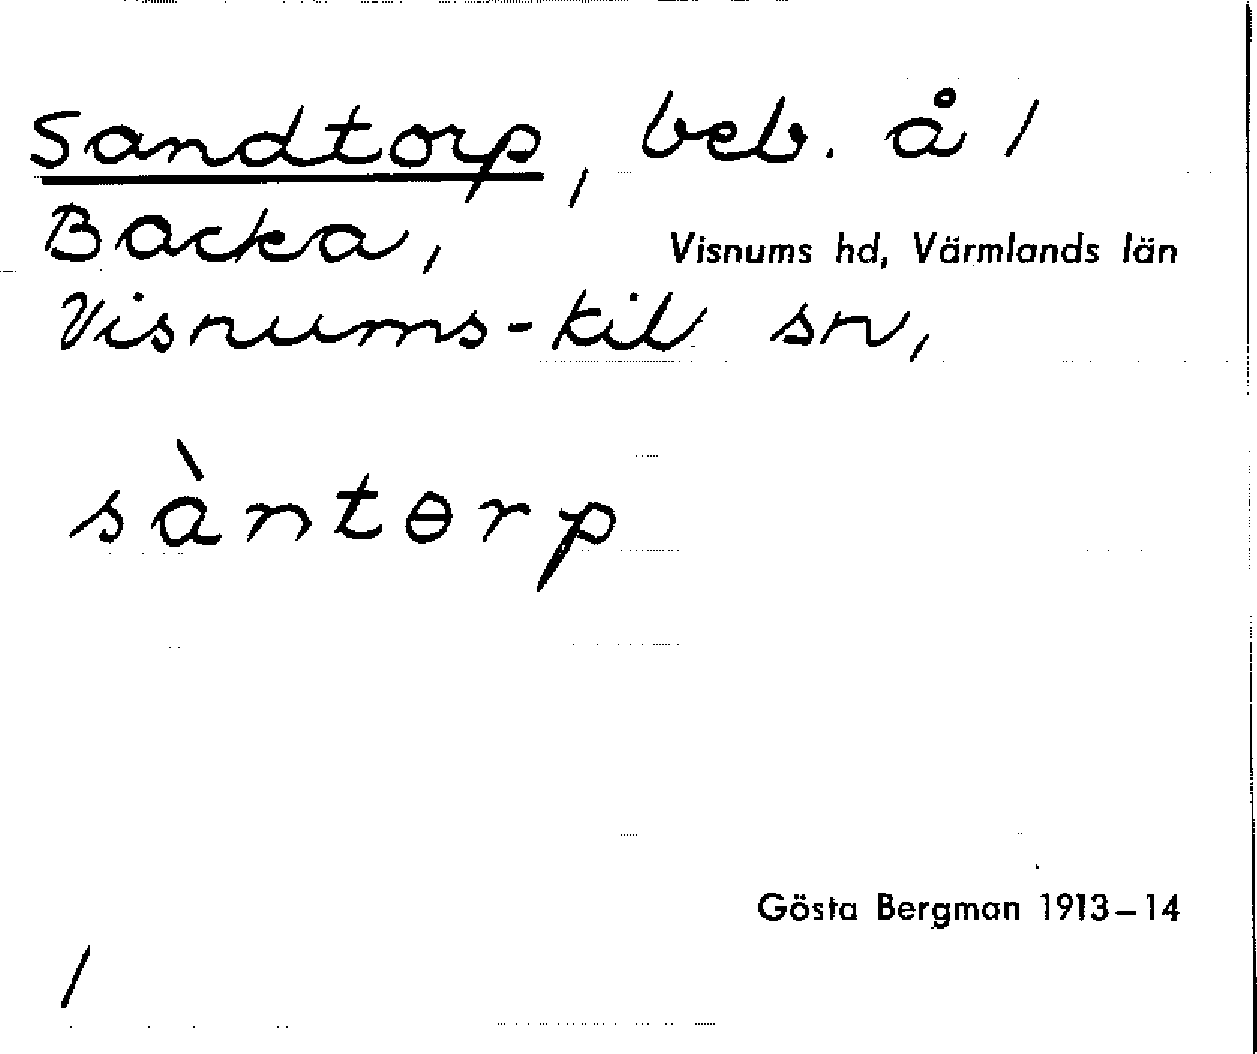 Sandtorp, beb. å /
Backa,
Visnums hd, Värmlands län
Visnums-kil sn,
sàntɵrp
Gösta Bergman 1913–14
/